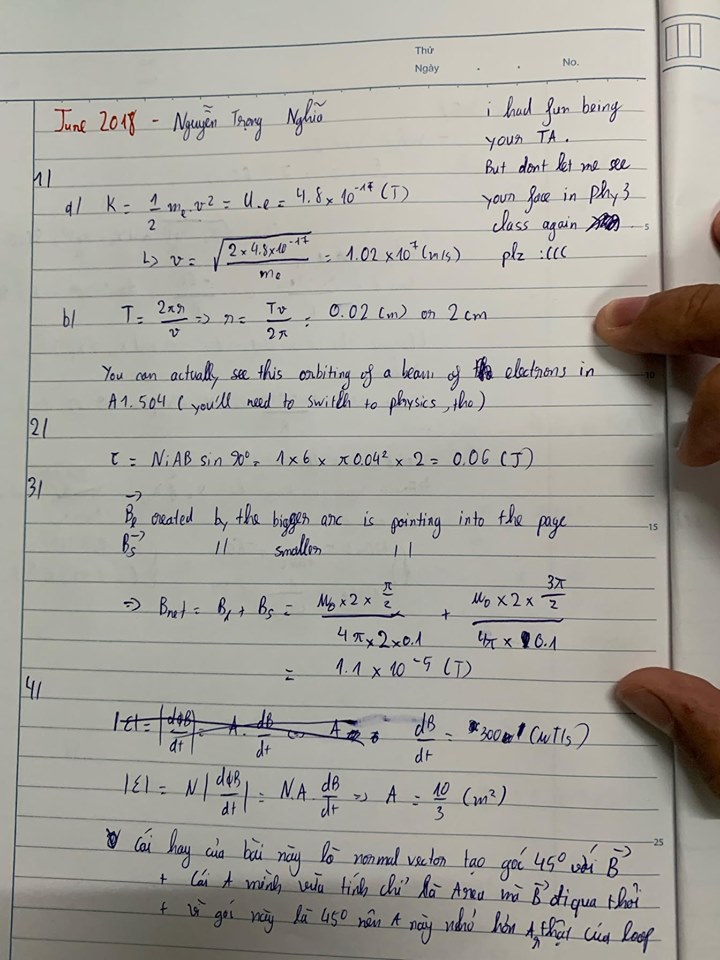 Thứ
Ngày . . No.
June 2018 - Nguyễn Trọng Nghĩa
i had fun being
your TA.
But dont let me see
your face in Phy 3
class again
plz :(((
1/
a/ K = 1/2 me.v² = U.e = 4.8 x 10⁻¹⁷ (J)
↳ v = √(2 x 4.8 x 10⁻¹⁷ / me) = 1.02 x 10⁷ (m/s)
5
b/ T = 2πr/v => r = Tv/2π = 0.02 (m) or 2 cm
You can actually see this orbiting of a beam of electrons in
10
A1.504 (you'll need to switch to physics, tho)
2/
τ = NiAB sin 90° = 1 x 6 x π0.04² x 2 = 0.06 (J)
3/
B⃗ℓ created by the bigger arc is pointing into the page
15
B⃗s // smaller //
=> Bnet = Bℓ + Bs = (μ0 x 2 x π/2)/(4π x 2 x 0.1) + (μ0 x 2 x 3π/2)/(4π x 0.1)
= 1.1 x 10⁻⁵ (T)
4/
|ε| = |dϕB/dt| = A. dB/dt dB/dt = 300 (mT/s)
|ε| = N|dϕB/dt| = N.A. dB/dt => A = 10/3 (m²)
25
Cái hay của bài này là normal vector tạo góc 45° với B⃗
+ cái A mình vừa tính chỉ là Area mà B⃗ đi qua thôi
+ vì góc này là 45° nên A này nhỏ hơn A thật của loop